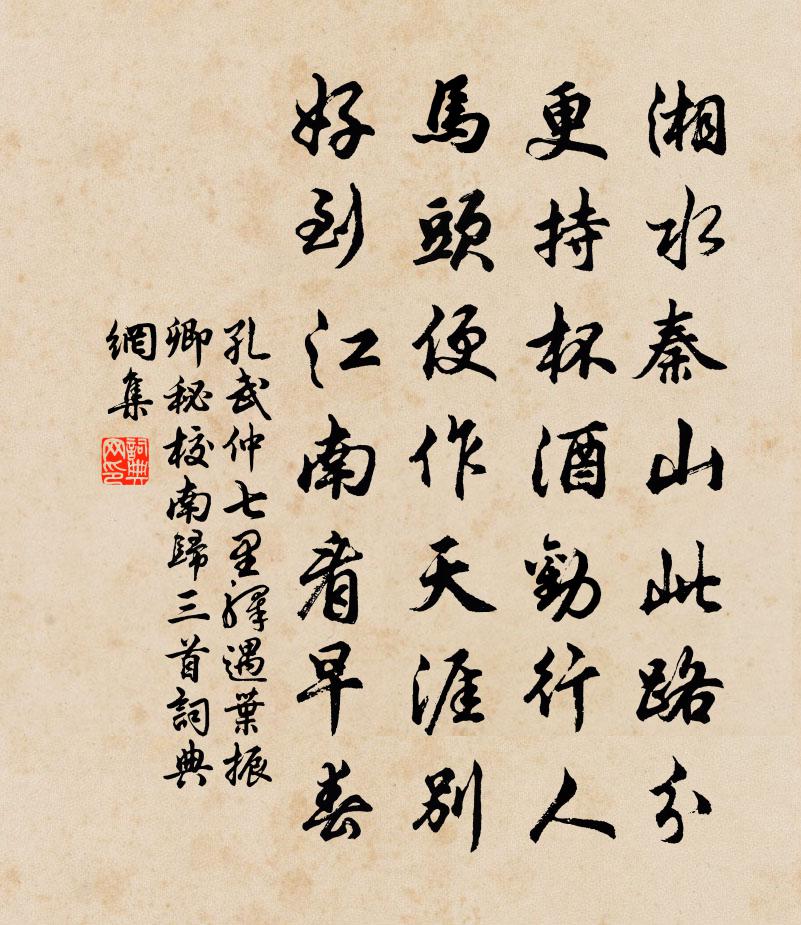 湘水秦山此路分
更持杯酒勸行人
馬頭便作天涯別
好到江南看早春
孔武仲七里驛遇葉振
卿秘校南歸三首詞典
網集
詞典網印